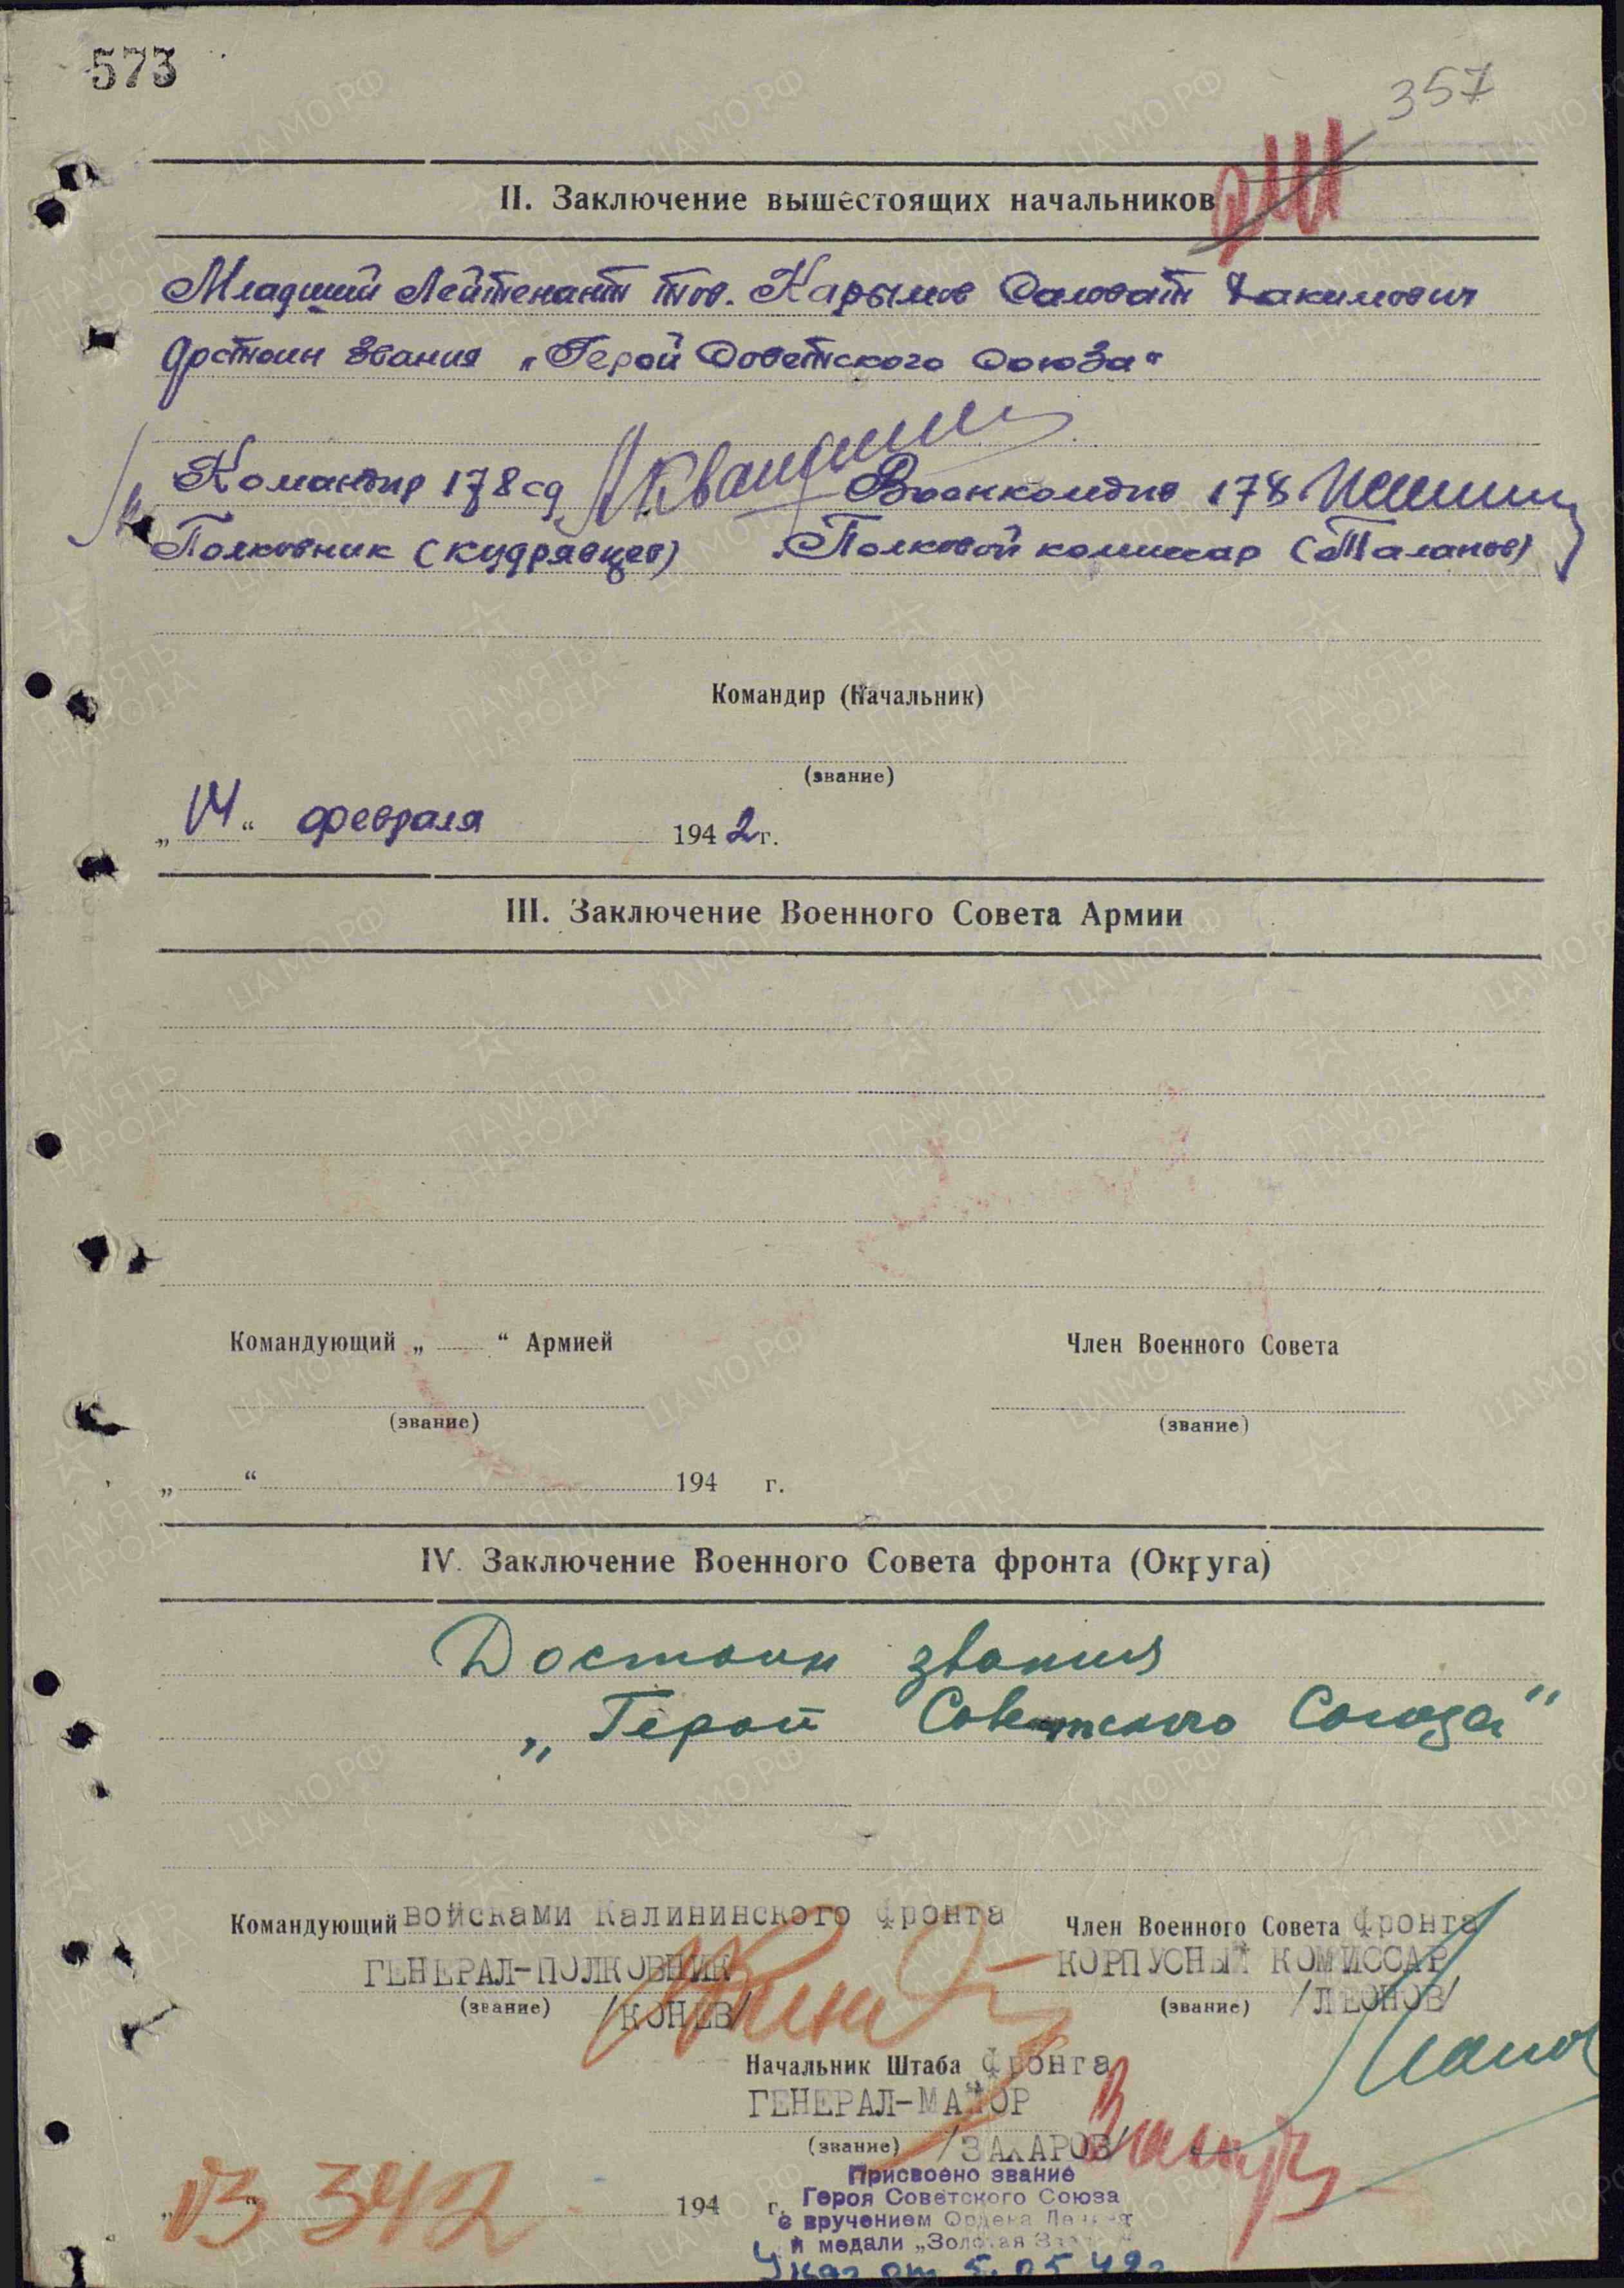 573
357
II. Заключение вышестоящих начальников
Младший Лейтенант тов. Карымов Салават Хакимович
достоин звания „Герой Советского Союза“
Командир 178 сд Военком див 178
Полковник (Кудрявцев) Полковой комиссар (Таланов)
Командир (Начальник)
(звание)
„14“ февраля 1942 г.
III. Заключение Военного Совета Армии
Командующий „ “ Армией Член Военного Совета
(звание) (звание)
„ “ 194 г.
IV. Заключение Военного Совета фронта (Округа)
Достоин звания
„Герой Советского Союза“
Командующий войсками Калининского фронта Член Военного Совета фронта
ГЕНЕРАЛ-ПОЛКОВНИК КОРПУСНЫЙ КОМИССАР
(звание) /КОНЕВ/ (звание) /ЛЕОНОВ/
Начальник Штаба фронта
ГЕНЕРАЛ-МАЙОР
(звание) /ЗАХАРОВ/
Присвоено звание
194 г. Героя Советского Союза
с вручением Ордена Ленина
и медали „Золотая
Указ от 5.05.42г
ЦАМО.РФ
ПАМЯТЬ
НАРОДА